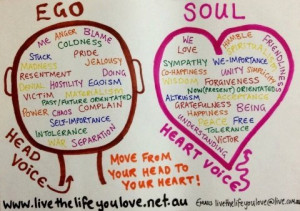 EGO
ME ANGER BLAME
COLDNESS
STACK PRIDE
MADNESS JEALOUSY
RESENTMENT DOING
DENIAL HOSTILITY EGOISM
VICTIM MATERIALISM
PAST/FUTURE ORIENTATED
POWER CHAOS COMPLAIN
SELF-IMPORTANCE
INTOLERANCE
WAR SEPARATION
HEAD VOICE
SOUL
WE HUMBLE FRIENDLINESS
LOVE SPIRITUALISM
SYMPATHY WE-IMPORTANCE
CO-HAPPINESS UNITY SIMPLICITY
WISDOM FORGIVENESS
NOW (PRESENT) ORIENTATED
ALTRUISM ACCEPTANCE
GRATEFULNESS BEING
HAPPINESS
PEACE FREE
TOLERANCE
UNDERSTANDING VICTOR
HEART VOICE
MOVE FROM
YOUR HEAD TO
YOUR HEART!
www.livethelifeyoulove.net.au
EMAIL livethelifeyoulove@live.com